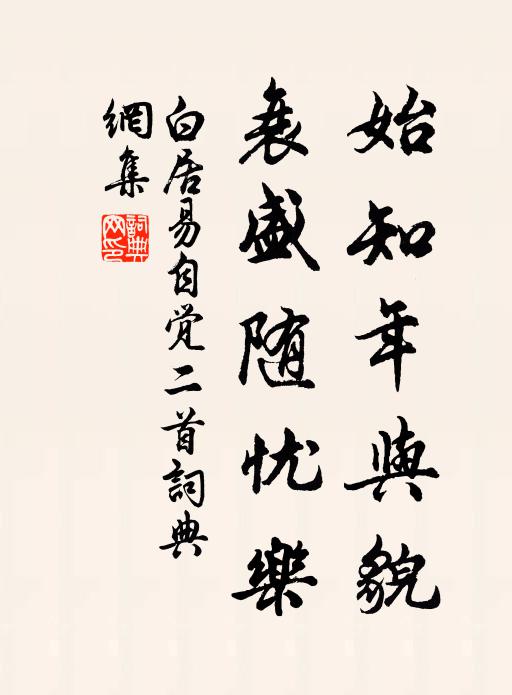 始知年與貌
衰盛随忧樂
白居易自觉二首詞典
網集
詞典
网印